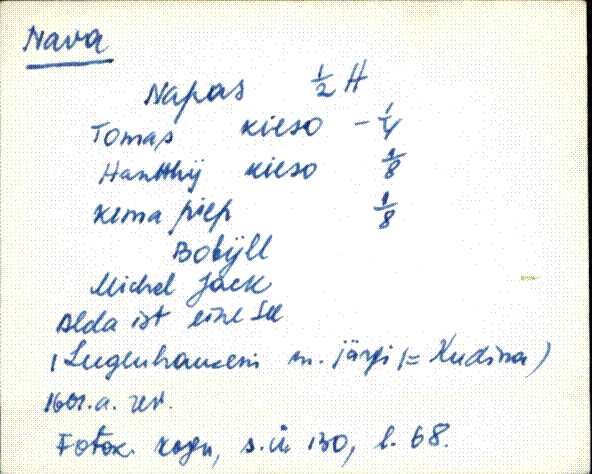 Nava
Napas ½ H
Tomas Kieso - ¼
Kieso ⅛
Kema piep ⅛
Bobÿll
Michel Jack
Alda ist eine See
(Lugenhauseni m. järvi (= Kudina)
1601. a. rev.
Fotok. kogu, s. ü. 130, l. 68.